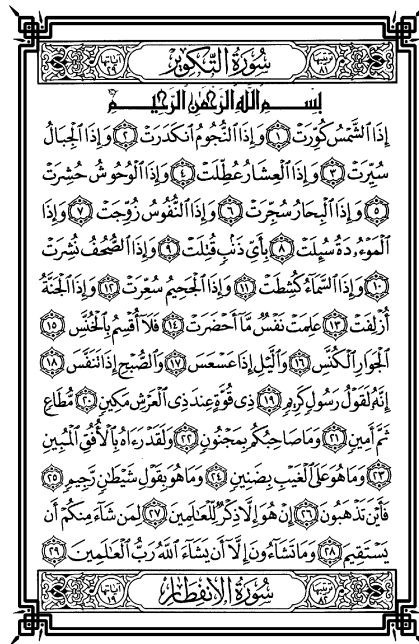 ترتيبها ٨١ سُورَةُ التَّكْوِيرِ آياتها ٢٩
بِسْمِ اللَّهِ الرَّحْمَٰنِ الرَّحِيمِ
إِذَا الشَّمْسُ كُوِّرَتْ ١ وَإِذَا النُّجُومُ انكَدَرَتْ ٢ وَإِذَا الْجِبَالُ
سُيِّرَتْ ٣ وَإِذَا الْعِشَارُ عُطِّلَتْ ٤ وَإِذَا الْوُحُوشُ حُشِرَتْ
٥ وَإِذَا الْبِحَارُ سُجِّرَتْ ٦ وَإِذَا النُّفُوسُ زُوِّجَتْ ٧ وَإِذَا
الْمَوْءُۥدَةُ سُئِلَتْ ٨ بِأَيِّ ذَنۢبٍ قُتِلَتْ ٩ وَإِذَا الصُّحُفُ نُشِرَتْ
١٠ وَإِذَا السَّمَآءُ كُشِطَتْ ١١ وَإِذَا الْجَحِيمُ سُعِّرَتْ ١٢ وَإِذَا الْجَنَّةُ
أُزْلِفَتْ ١٣ عَلِمَتْ نَفْسٌ مَّآ أَحْضَرَتْ ١٤ فَلَآ أُقْسِمُ بِالْخُنَّسِ ١٥
الْجَوَارِ الْكُنَّسِ ١٦ وَالَّيْلِ إِذَا عَسْعَسَ ١٧ وَالصُّبْحِ إِذَا تَنَفَّسَ ١٨
إِنَّهُۥ لَقَوْلُ رَسُولٍ كَرِيمٍ ١٩ ذِي قُوَّةٍ عِندَ ذِي الْعَرْشِ مَكِينٍ ٢٠ مُّطَاعٍ
ثَمَّ أَمِينٍ ٢١ وَمَا صَاحِبُكُم بِمَجْنُونٍ ٢٢ وَلَقَدْ رَءَاهُ بِالْأُفُقِ الْمُبِينِ
٢٣ وَمَا هُوَ عَلَى الْغَيْبِ بِضَنِينٍ ٢٤ وَمَا هُوَ بِقَوْلِ شَيْطَٰنٍ رَّجِيمٍ ٢٥
فَأَيْنَ تَذْهَبُونَ ٢٦ إِنْ هُوَ إِلَّا ذِكْرٌ لِّلْعَٰلَمِينَ ٢٧ لِمَن شَآءَ مِنكُمْ أَن
يَسْتَقِيمَ ٢٨ وَمَا تَشَآءُونَ إِلَّآ أَن يَشَآءَ اللَّهُ رَبُّ الْعَٰلَمِينَ ٢٩
ترتيبها ٨٢ سُورَةُ الِانفِطَارِ آياتها ١٩